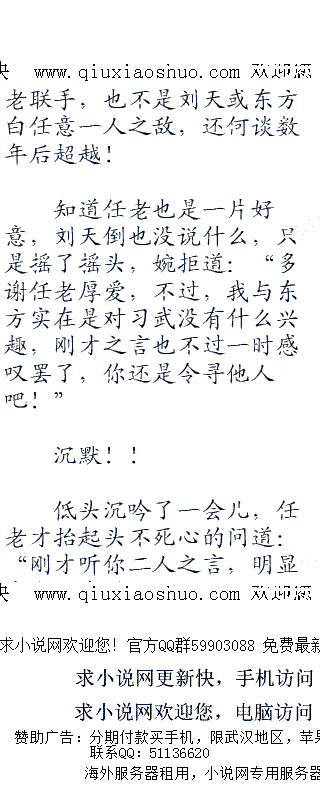 快　www.qiuxiaoshuo.com 欢迎您
老联手，也不是刘天或东方
白任意一人之敌，还何谈数
年后超越！
知道任老也是一片好
意，刘天倒也没说什么，只
是摇了摇头，婉拒道：“多
谢任老厚爱，不过，我与东
方实在是对习武没有什么兴
趣，刚才之言也不过一时感
叹罢了，你还是令寻他人
吧！”
沉默！！
低头沉吟了一会儿，任
老才抬起头不死心的问道：
“刚才听你二人之言，明显
快　www.qiuxiaoshuo.com 欢迎您
求小说网欢迎您！官方QQ群59903088 免费最新
求小说网更新快，手机访问
求小说网欢迎您，电脑访问
赞助广告：分期付款买手机，限武汉地区，苹果
联系QQ：51136620
海外服务器租用，小说网专用服务器